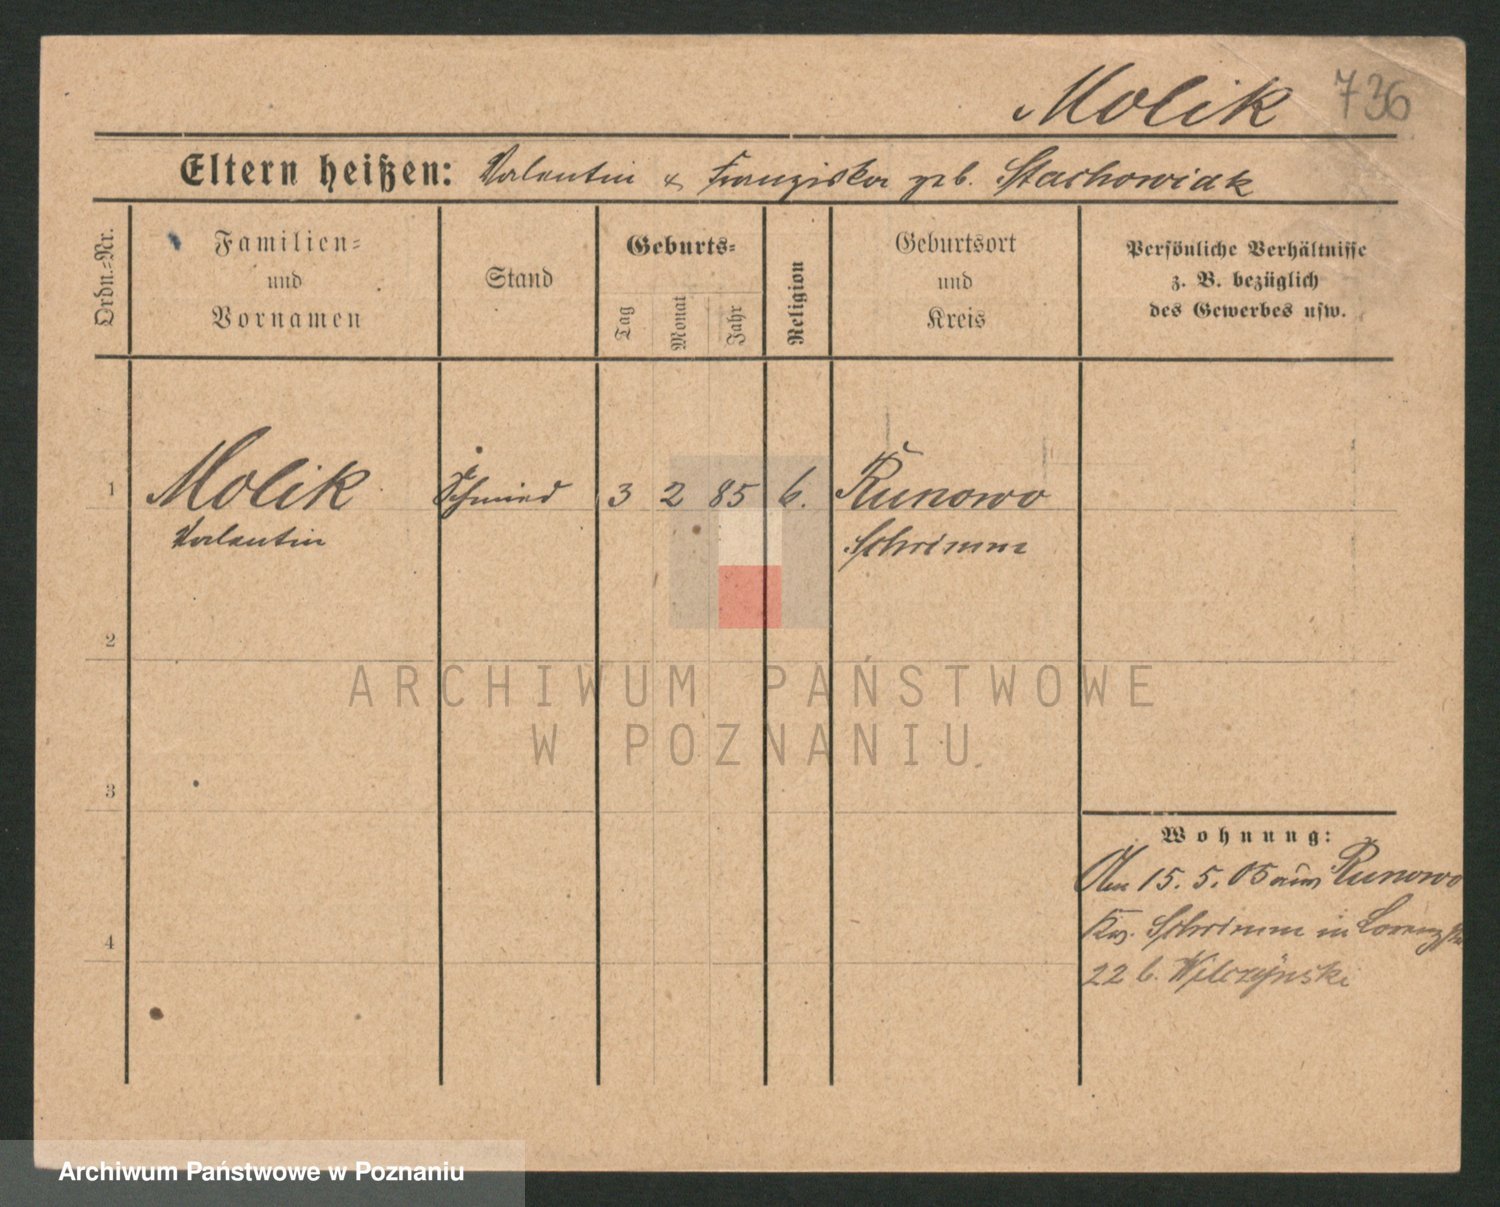 Molik 736
Eltern heißen: Valentin & Franziska geb. Stachowiak
Ordn.=Nr.
Familien=
und
Vornamen
Stand
Geburts=
Tag
Monat
Jahr
Religion
Geburtsort
und
Kreis
Persönliche Verhältnisse
z. B. bezüglich
des Gewerbes usw.
1 Molik Schmied 3 2 85 k. Runowo
Valentin Schrimm
2
3
4
ARCHIWUM PAŃSTWOWE
W POZNANIU
Wohnung:
15. 5. 05 aus Runowo
Krs. Schrimm in Lorenzstr
22 b. Wilczynski
Archiwum Państwowe w Poznaniu